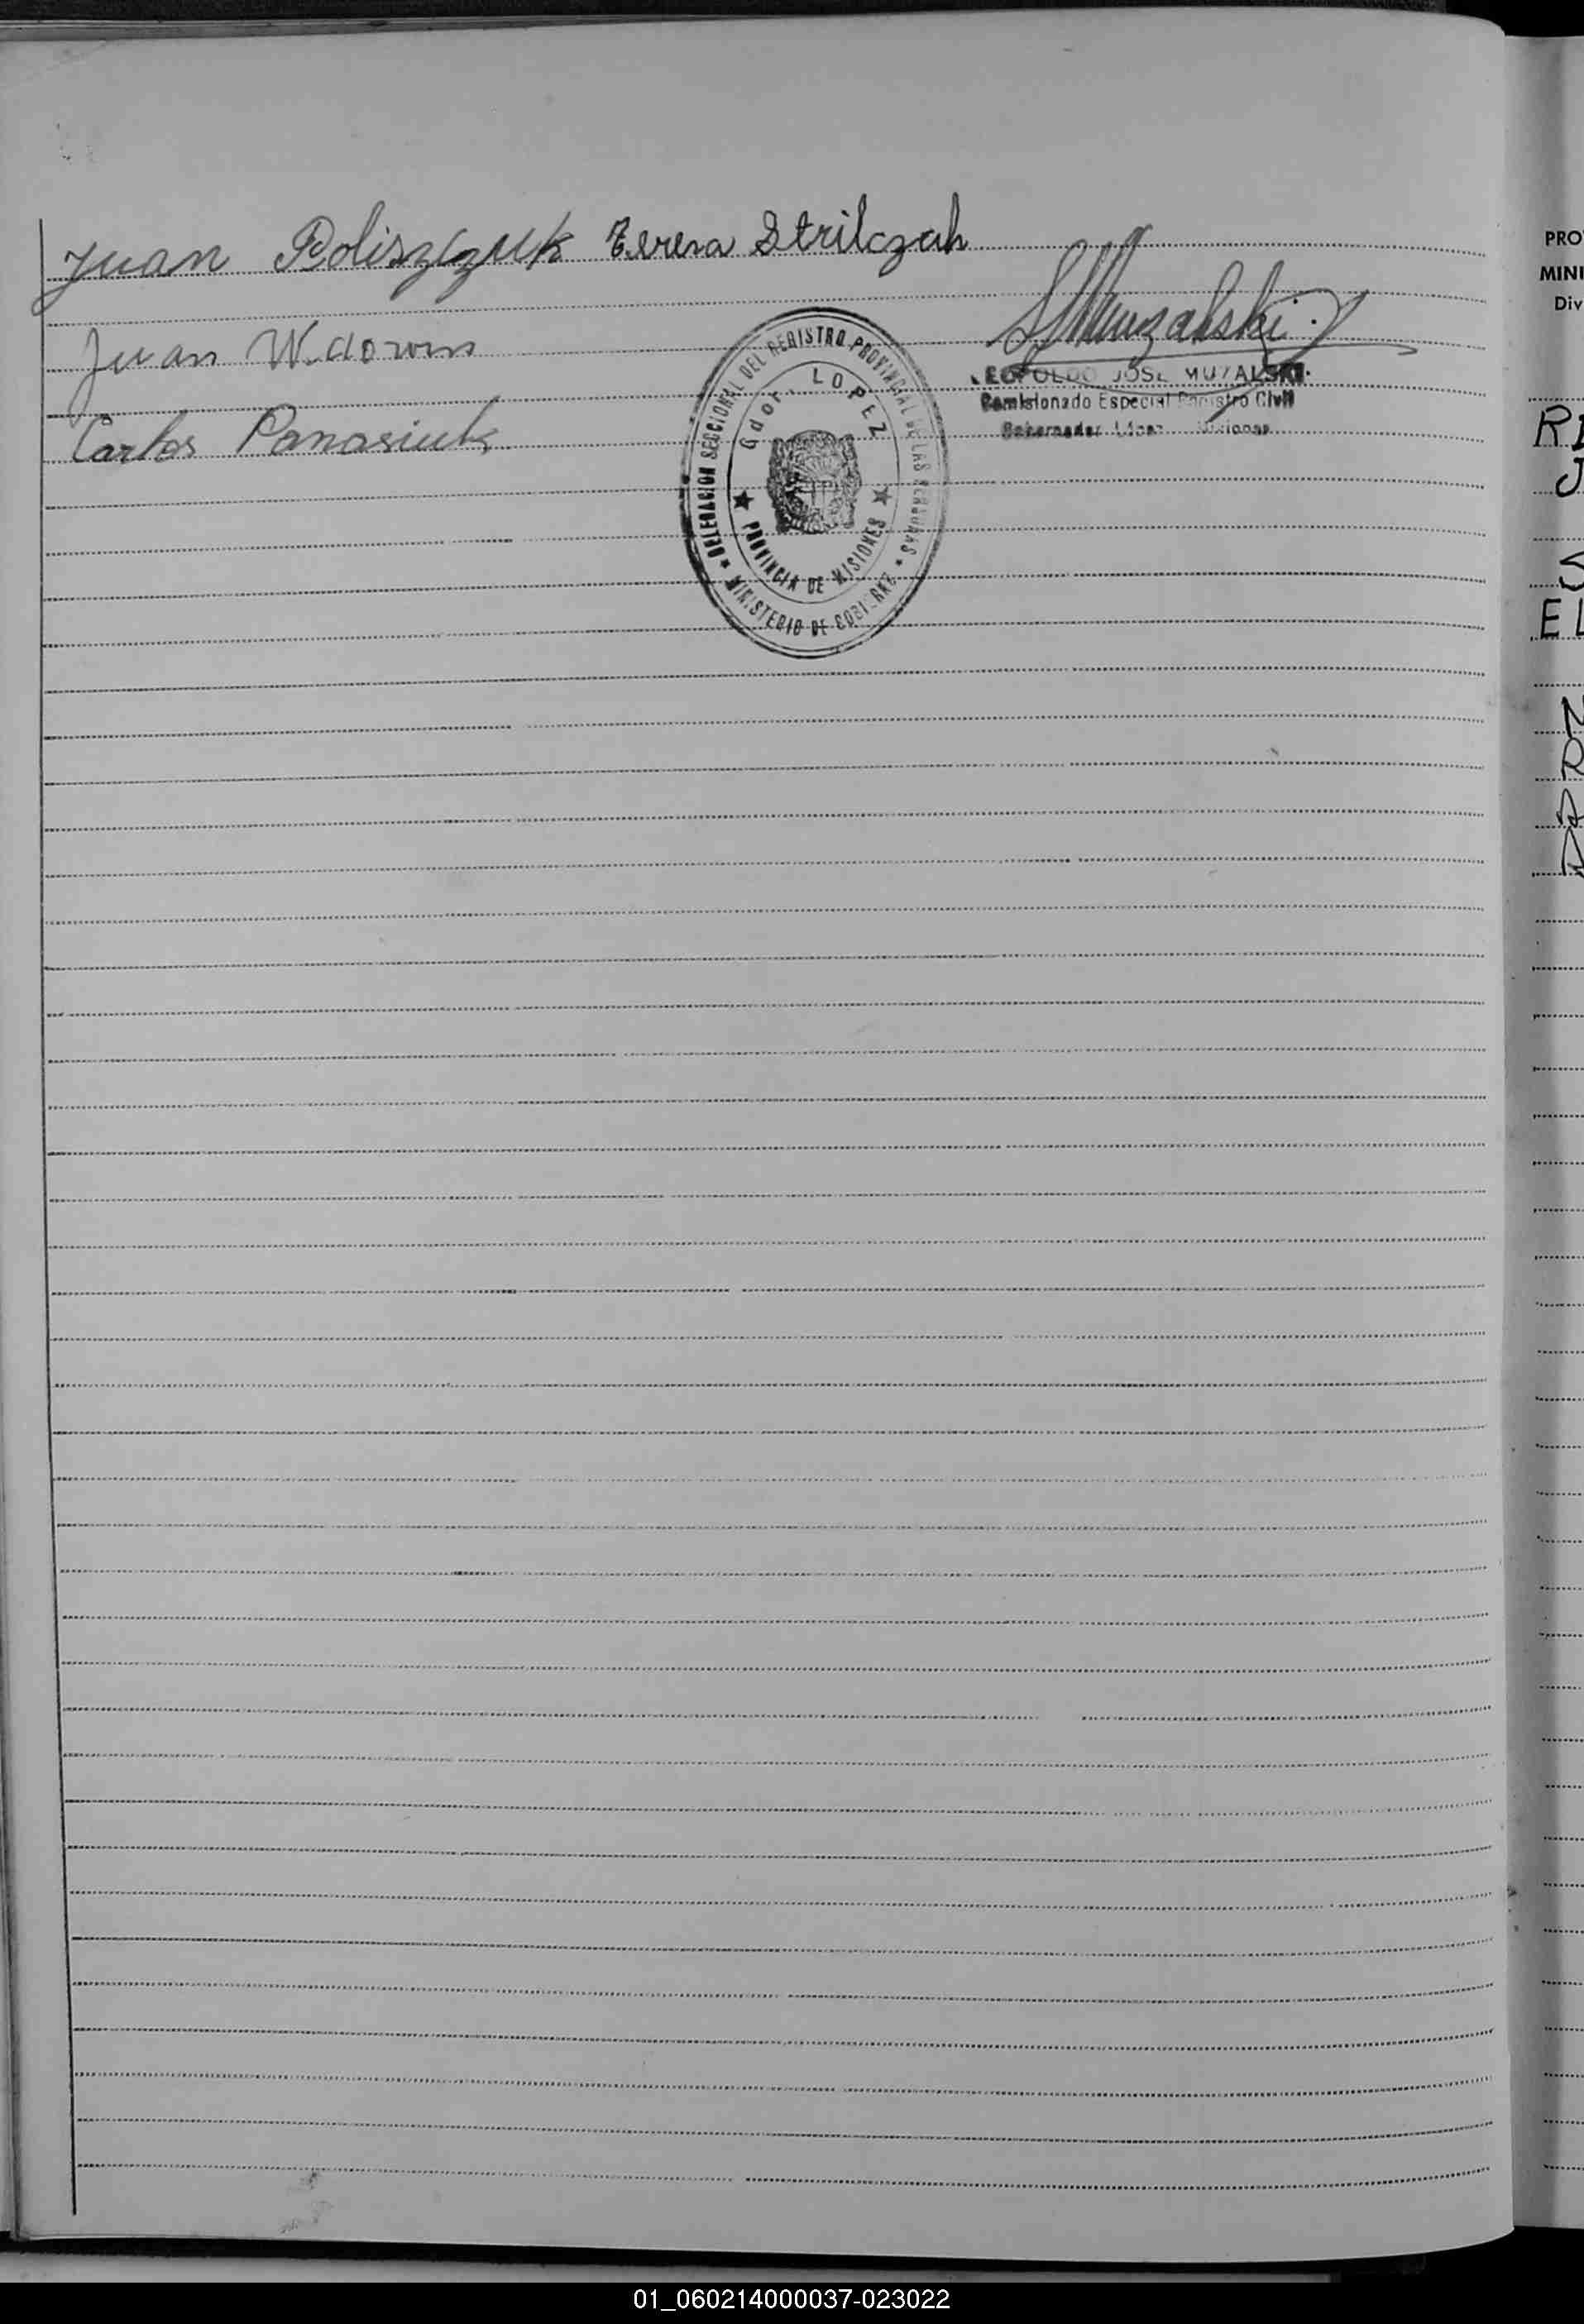 Juan Poliszczuk Teresa Strilczah
Juan Wdowin
Carlos Panasiuk
LEOPOLDO JOSE MUZALSKI
Comisionado Especial Registro Civil
Gobernador López Misiones
DELEGACION SECCIONAL DEL REGISTRO PROVINCIAL DE LAS PERSONAS
MINISTERIO DE GOBIERNO
Gdor. LOPEZ
PROVINCIA DE MISIONES
PRO
MINI
Div
J
EL
01_060214000037-023022